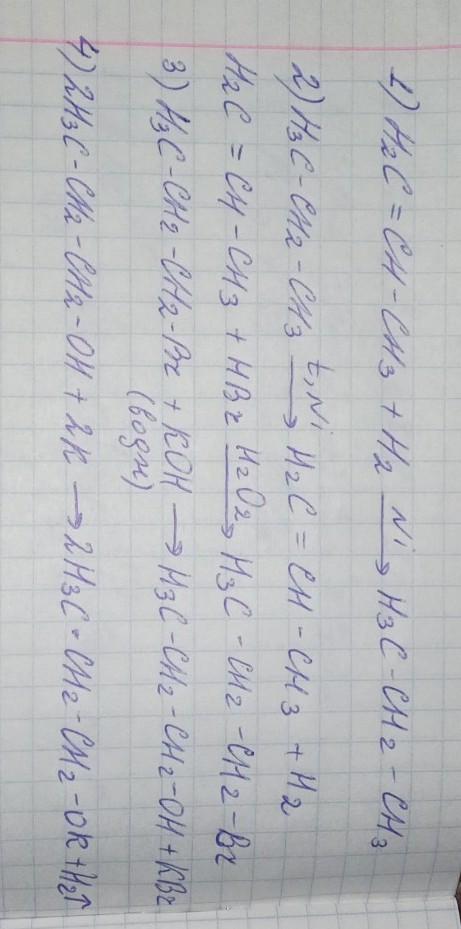 1) H2C = CH - CH3 + H2 Ni→ H3C - CH2 - CH3
2) H3C - CH2 - CH3 t, Ni→ H2C = CH - CH3 + H2
H2C = CH - CH3 + HBr H2O2→ H3C - CH2 - CH2 - Br
3) H3C - CH2 - CH2 - Br + KOH → H3C - CH2 - CH2 - OH + KBr
(водн)
4) 2H3C - CH2 - CH2 - OH + 2K → 2H3C - CH2 - CH2 - OK + H2↑